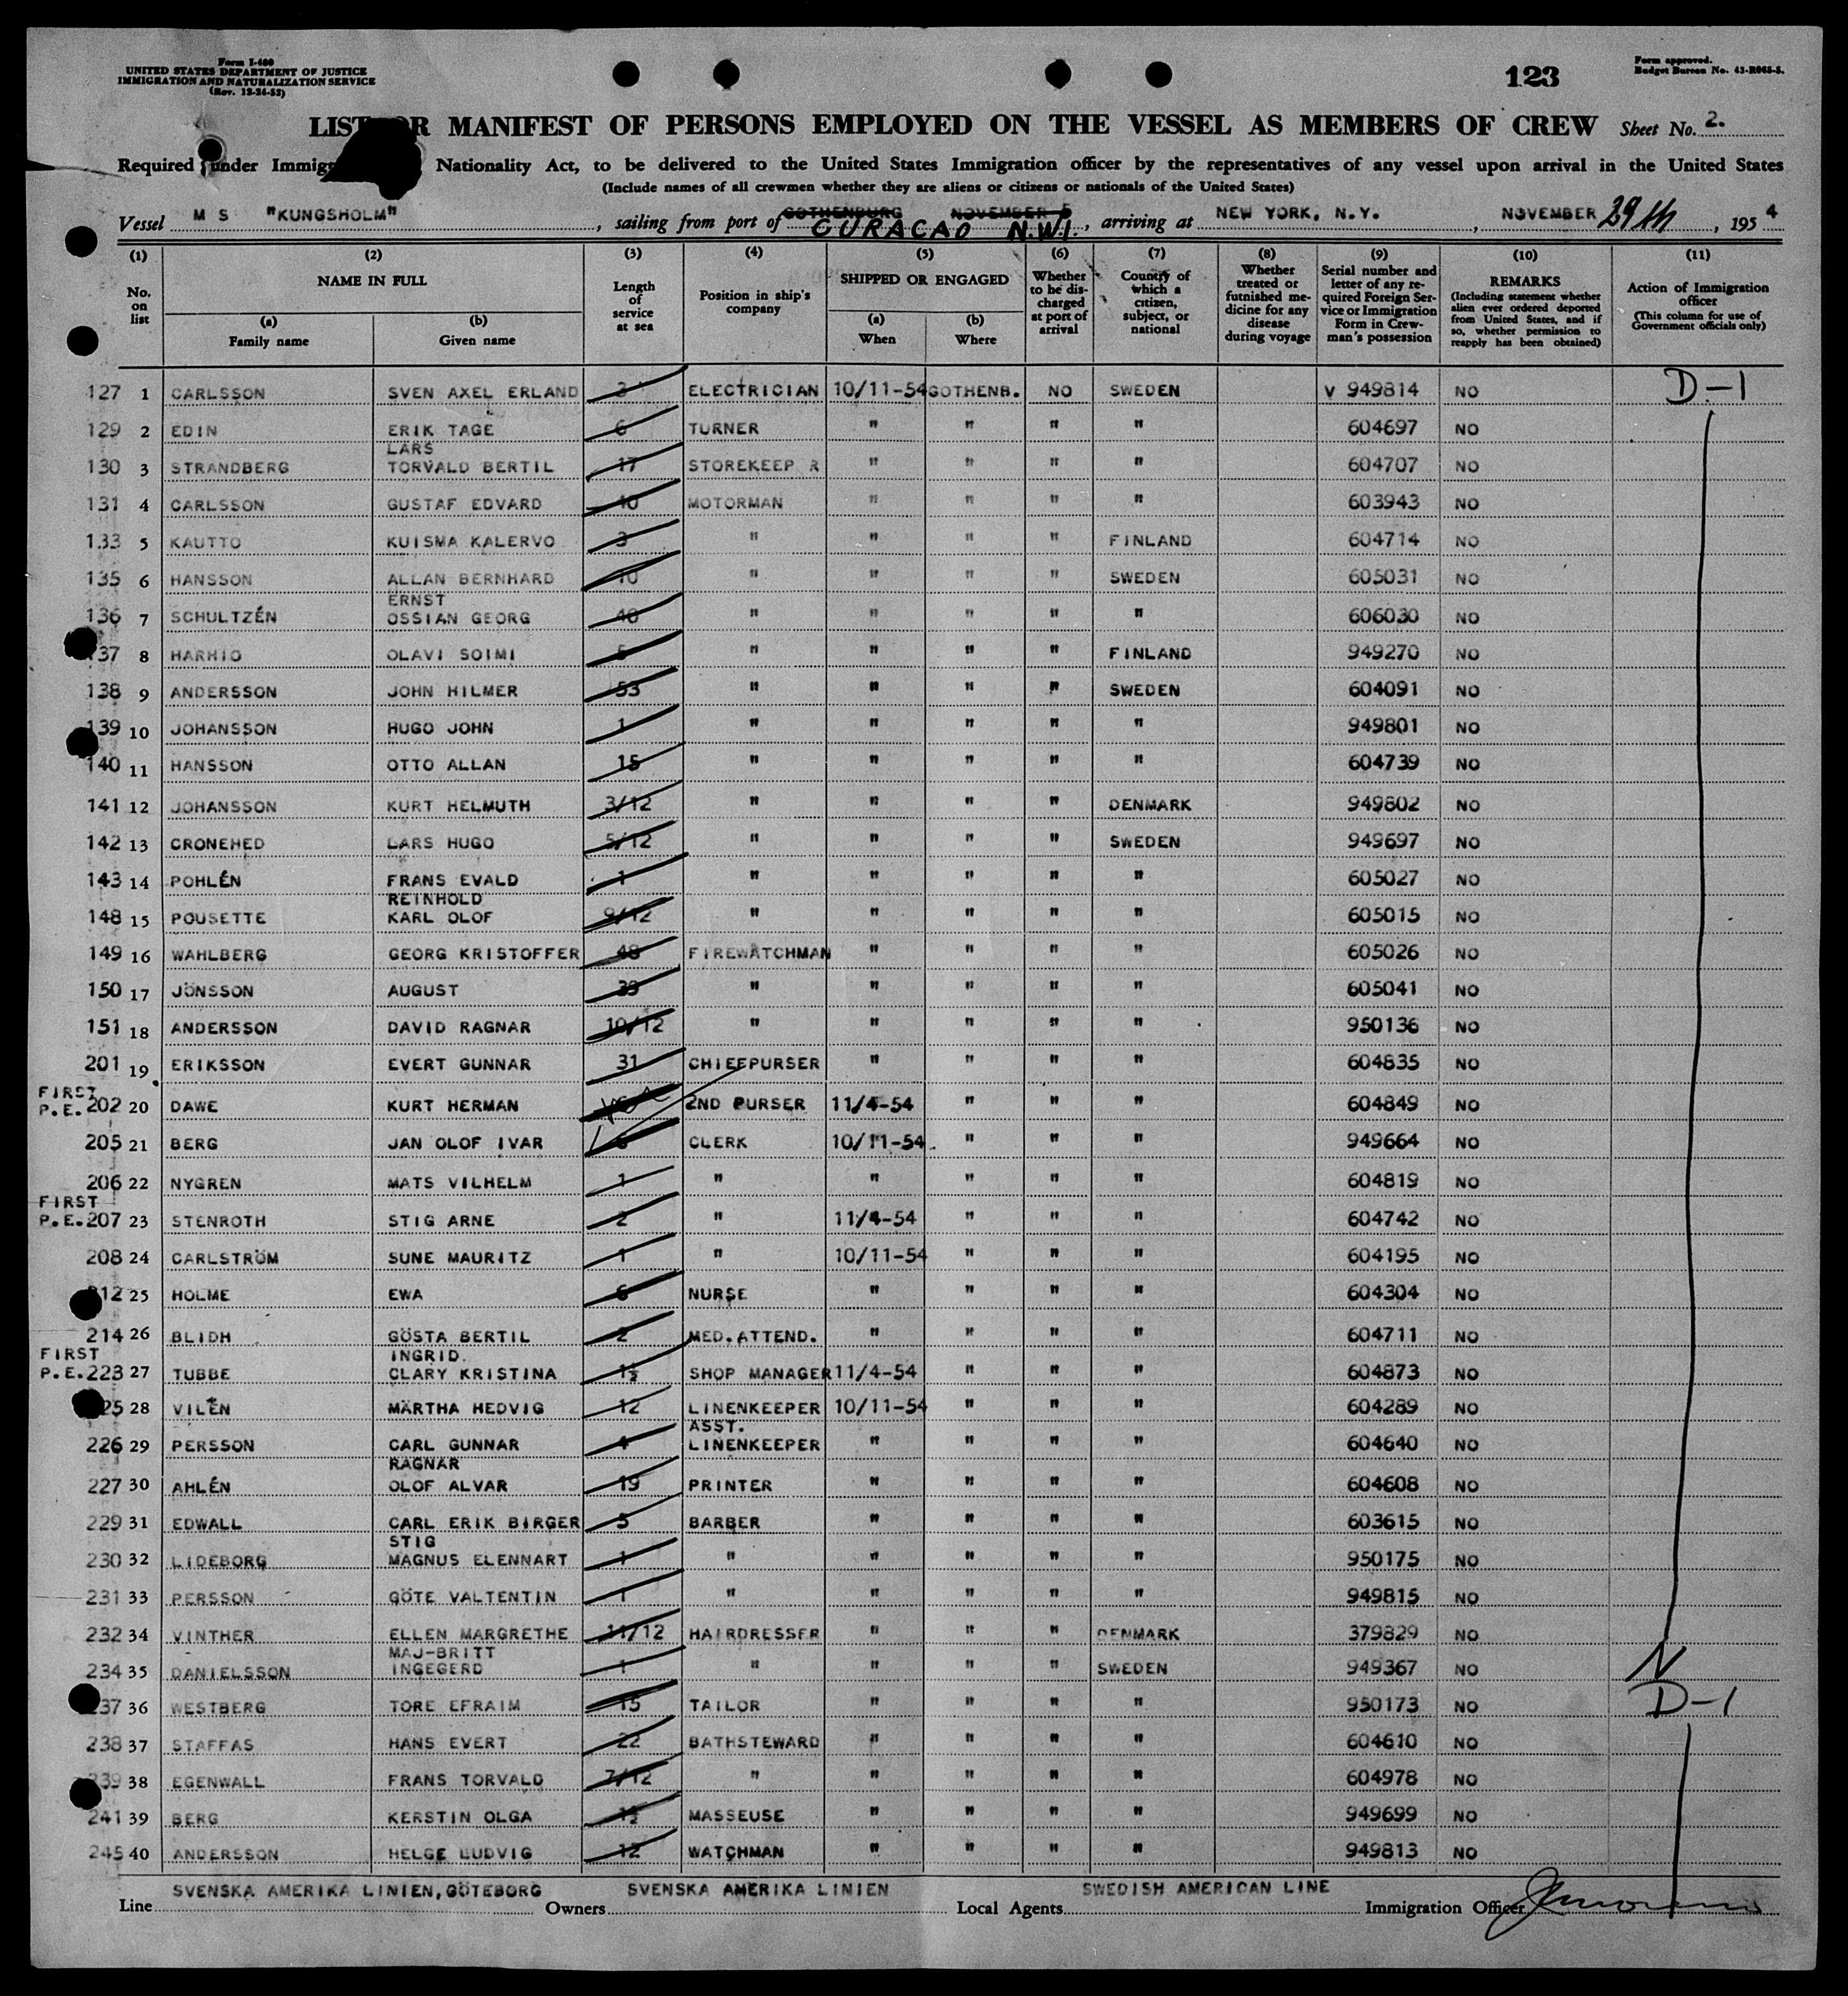 Form I-480
UNITED STATES DEPARTMENT OF JUSTICE
IMMIGRATION AND NATURALIZATION SERVICE
(Rev. 12-24-52)
123
Form approved.
Budget Bureau No. 43-R065-5.
LIST OR MANIFEST OF PERSONS EMPLOYED ON THE VESSEL AS MEMBERS OF CREW Sheet No. 2.
Required under Immig Nationality Act, to be delivered to the United States Immigration officer by the representatives of any vessel upon arrival in the United States
(Include names of all crewmen whether they are aliens or citizens or nationals of the United States)
Vessel M S "KUNGSHOLM", sailing from port of GOTHENBURG NOVEMBER 5 CURACAO N.W.I., arriving at NEW YORK, N.Y., NOVEMBER 29th, 1954
(1) (2) (3) (4) (5) (6) (7) (8) (9) (10) (11)
No. on list NAME IN FULL (a) Family name (b) Given name Length of service at sea Position in ship's company SHIPPED OR ENGAGED (a) When (b) Where Whether to be discharged at port of arrival Country of which a citizen, subject, or national Whether treated or furnished medicine for any disease during voyage Serial number and letter of any required Foreign Service or Immigration Form in Crewman's possession REMARKS (Including statement whether alien ever ordered deported from United States, and if so, whether permission to reapply has been obtained) Action of Immigration officer (This column for use of Government officials only)
127 1 CARLSSON SVEN AXEL ERLAND 3 ELECTRICIAN 10/11-54 GOTHENB. NO SWEDEN V 949814 NO D-1
129 2 EDIN ERIK TAGE 6 TURNER " " " " 604697 NO
130 3 STRANDBERG LARS TORVALD BERTIL 17 STOREKEEP R " " " " 604707 NO
131 4 CARLSSON GUSTAF EDVARD 10 MOTORMAN " " " " 603943 NO
133 5 KAUTTO KUISMA KALERVO 3 " " " " FINLAND 604714 NO
135 6 HANSSON ALLAN BERNHARD 10 " " " " SWEDEN 605031 NO
136 7 SCHULTZÉN ERNST OSSIAN GEORG 40 " " " " " 606030 NO
137 8 HARHIO OLAVI SOIMI 5 " " " " FINLAND 949270 NO
138 9 ANDERSSON JOHN HILMER 53 " " " " SWEDEN 604091 NO
139 10 JOHANSSON HUGO JOHN 1 " " " " " 949801 NO
140 11 HANSSON OTTO ALLAN 15 " " " " " 604739 NO
141 12 JOHANSSON KURT HELMUTH 3/12 " " " " DENMARK 949802 NO
142 13 CRONEHED LARS HUGO 5/12 " " " " SWEDEN 949697 NO
143 14 POHLÉN FRANS EVALD 1 " " " " " 605027 NO
148 15 POUSETTE REINHOLD KARL OLOF 9/12 " " " " " 605015 NO
149 16 WAHLBERG GEORG KRISTOFFER 48 FIREWATCHMAN " " " " 605026 NO
150 17 JÖNSSON AUGUST 39 " " " " " 605041 NO
151 18 ANDERSSON DAVID RAGNAR 10/12 " " " " " 950136 NO
201 19 ERIKSSON EVERT GUNNAR 31 CHIEFPURSER " " " " 604835 NO
FIRST P.E. 202 20 DAWE KURT HERMAN 2ND PURSER 11/4-54 " " " 604849 NO
205 21 BERG JAN OLOF IVAR CLERK 10/11-54 " " " 949664 NO
206 22 NYGREN MATS VILHELM 1 " " " " " 604819 NO
FIRST P.E. 207 23 STENROTH STIG ARNE 2 " 11/4-54 " " " 604742 NO
208 24 CARLSTRÖM SUNE MAURITZ 1 " 10/11-54 " " " 604195 NO
212 25 HOLME EWA 6 NURSE " " " " 604304 NO
214 26 BLIDH GÖSTA BERTIL 2 MED. ATTEND. " " " " 604711 NO
FIRST P.E. 223 27 TUBBE INGRID. CLARY KRISTINA 1½ SHOP MANAGER 11/4-54 " " " 604873 NO
225 28 VILÉN MÄRTHA HEDVIG 12 LINENKEEPER 10/11-54 " " " 604289 NO
226 29 PERSSON CARL GUNNAR 4 ASST. LINENKEEPER " " " " 604640 NO
227 30 AHLÉN RAGNAR OLOF ALVAR 19 PRINTER " " " " 604608 NO
229 31 EDWALL CARL ERIK BIRGER 5 BARBER " " " " 603615 NO
230 32 LIDEBORG STIG MAGNUS ELENNART 1 " " " " " 950175 NO
231 33 PERSSON GÖTE VALTENTIN 1 " " " " " 949815 NO
232 34 VINTHER ELLEN MARGRETHE 11/12 HAIRDRESSER " " " DENMARK 379829 NO
234 35 DANIELSSON MAJ-BRITT INGEGERD 1 " " " " SWEDEN 949367 NO N
237 36 WESTBERG TORE EFRAIM 15 TAILOR " " " " 950173 NO D-1
238 37 STAFFAS HANS EVERT 22 BATHSTEWARD " " " " 604610 NO
239 38 EGENWALL FRANS TORVALD 7/12 " " " " " 604978 NO
241 39 BERG KERSTIN OLGA 1½ MASSEUSE " " " " 949699 NO
245 40 ANDERSSON HELGE LUDVIG 12 WATCHMAN " " " " 949813 NO
Line SVENSKA AMERIKA LINIEN, GÖTEBORG Owners SVENSKA AMERIKA LINIEN Local Agents SWEDISH AMERICAN LINE Immigration Officer